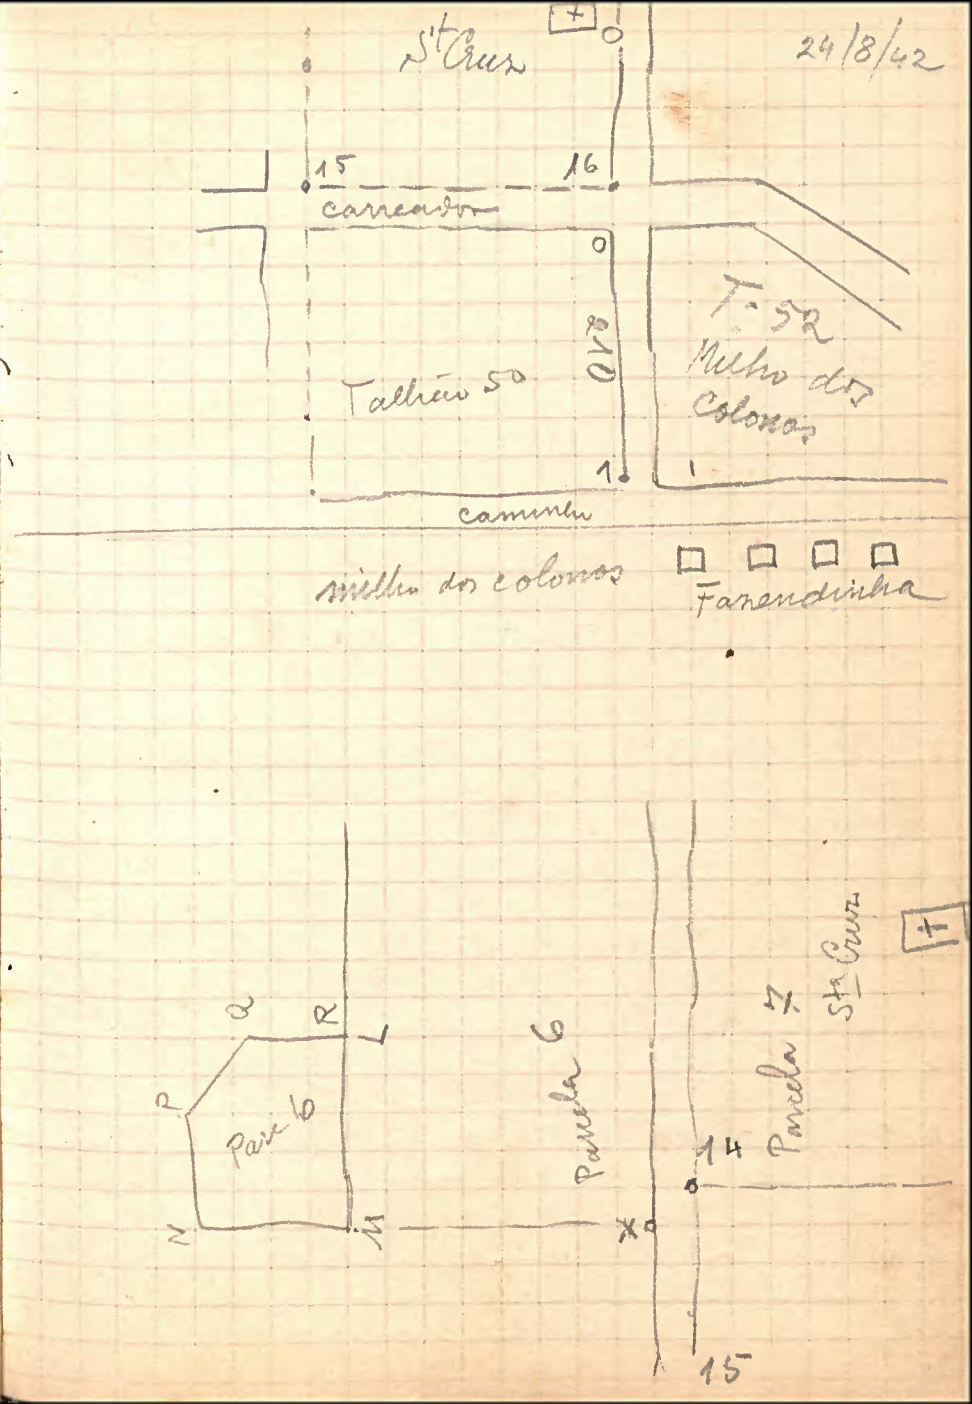 Sᵗ Cruz
24/8/42
15
16
carreador
O
T. 52
Milho dos
Colonos
Talhão 50
1
caminho
milho dos colonos
Fazendinha
Q
R
L
P
Parc 6
N
M
Parcela 6
X
14
Parcela 7
Sᵗᵃ Cruz
15